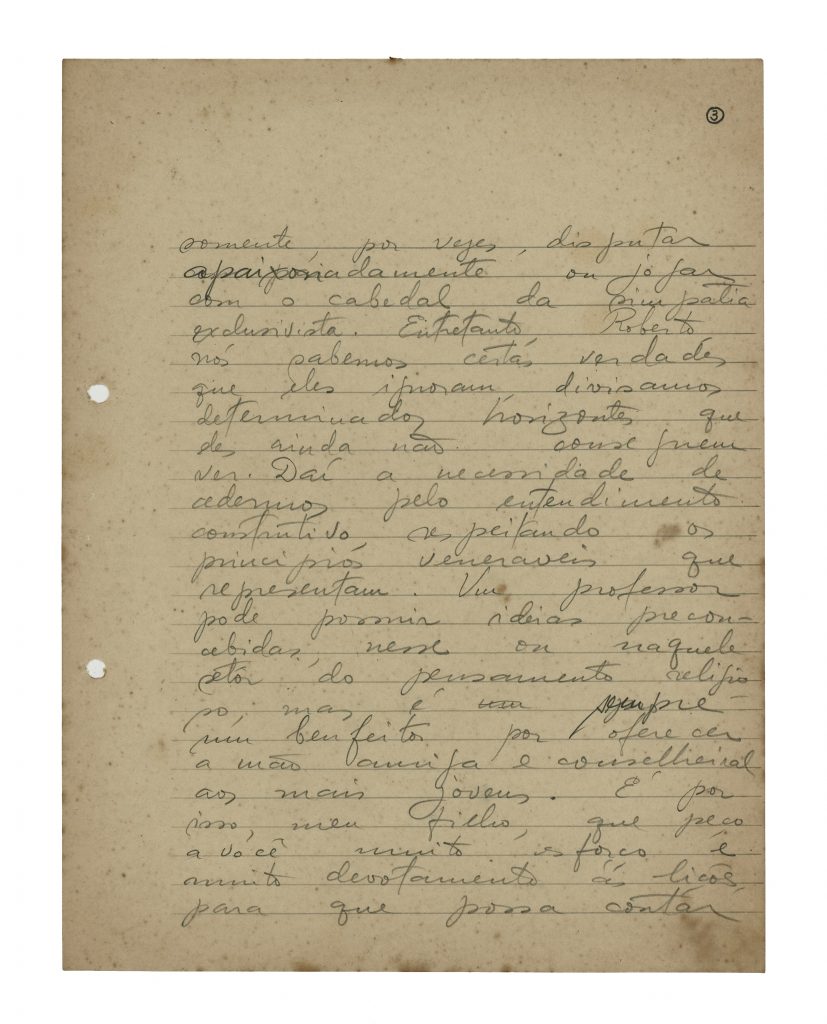 3
somente, por vezes, disputar
apaixonadamente ou jogar
com o cabedal da simpatia
exclusivista. Entretanto, Roberto
nós sabemos certas verdades
que eles ignoram, divisamos
determinados horizontes que
eles ainda não conseguem
ver. Daí a necessidade de
cedermos pelo entendimento
construtivo, respeitando os
principiós veneraveis que
representam. Um professor
pode possuir ideias precon-
cebidas, nesse ou naquele
setôr do pensamento religio
so, mas é um sempre
um benfeitor por oferecer
a mão amiga e conselheiral
aos mais jovens. E por
isso, meu filho, que peço
a você muito esforço é
muito devotamento ás licões,
para que possa contar